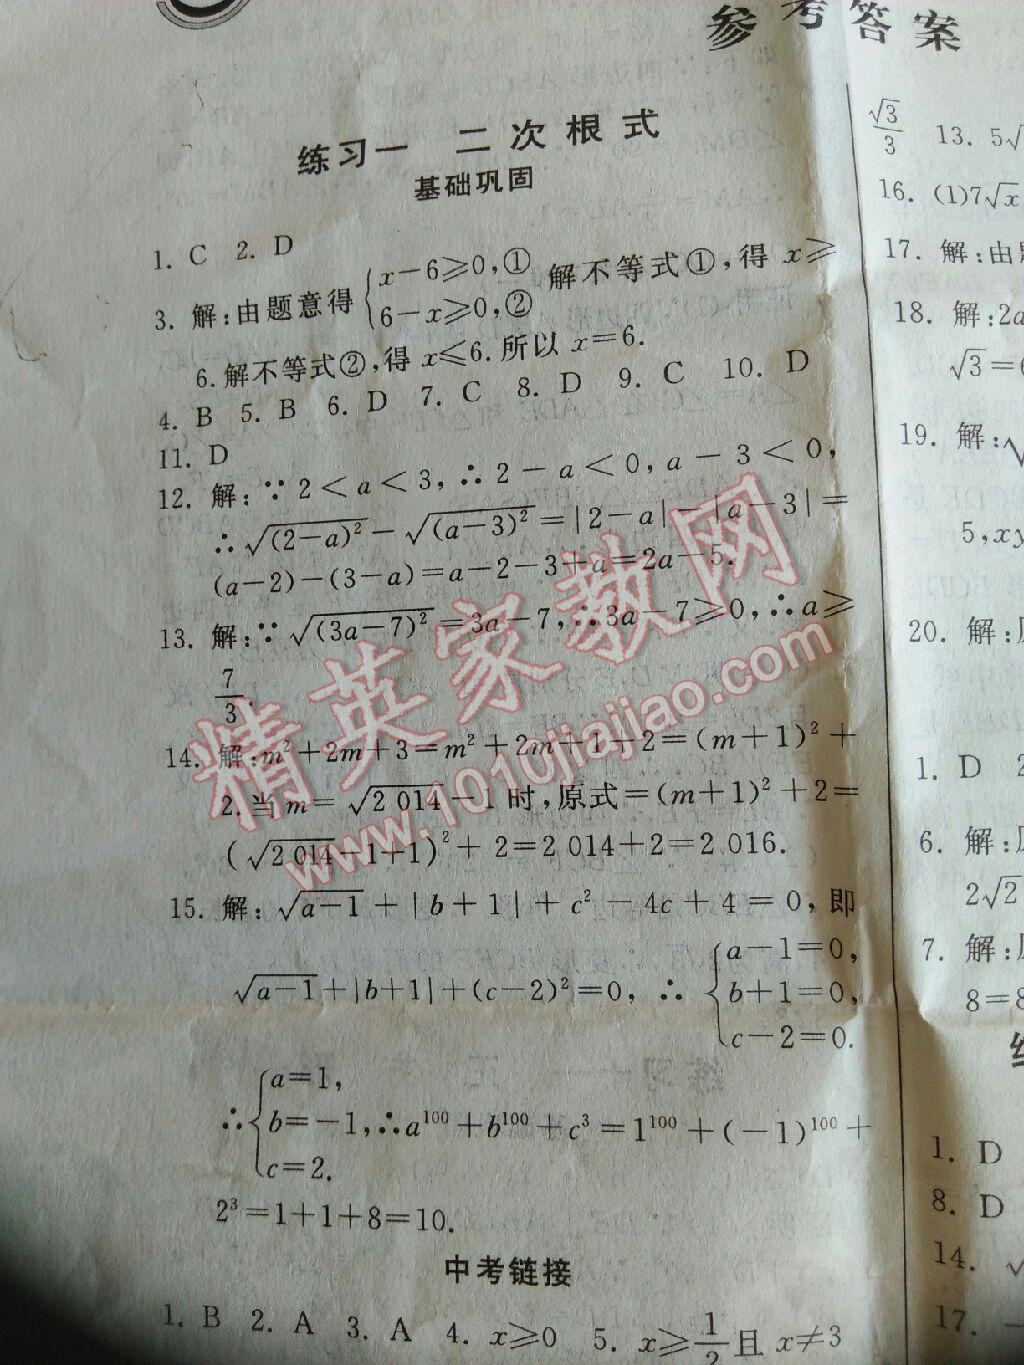 参考答案
练习一 二次根式
基础巩固
1. C 2. D
3. 解:由题意得{x-6≥0,① 6-x≥0,② 解不等式①,得 x≥
6.解不等式②,得 x≤6.所以 x=6.
4. B 5. B 6. D 7. C 8. D 9. C 10. D
11. D
12. 解:∵2<a<3,∴2-a<0,a-3<0,
∴√(2-a)²-√(a-3)²=|2-a|-|a-3|=
(a-2)-(3-a)=a-2-3+a=2a-5.
13. 解:∵√(3a-7)²=3a-7,∴3a-7≥0,∴a≥
7/3.
14. 解:m²+2m+3=m²+2m+1+2=(m+1)²+
2.当m=√2 014-1时,原式=(m+1)²+2=
(√2 014-1+1)²+2=2 014+2=2 016.
15. 解:√a-1+|b+1|+c²-4c+4=0,即
√a-1+|b+1|+(c-2)²=0,∴{a-1=0, b+1=0, c-2=0.
∴{a=1, b=-1, c=2. ∴a¹⁰⁰+b¹⁰⁰+c³=1¹⁰⁰+(-1)¹⁰⁰+
2³=1+1+8=10.
中考链接
1. B 2. A 3. A 4. x≥0 5. x≥1/2且x≠3
√3/3 13. 5√
16. (1)7√x
17. 解:由
18. 解:2a
√3=
19. 解:√
5,xy
20. 解:
1. D
6. 解:
2√2
7. 解:
8=8
1. D
8. D
14. √
17.
精英家教网
www.1010jiajiao.com